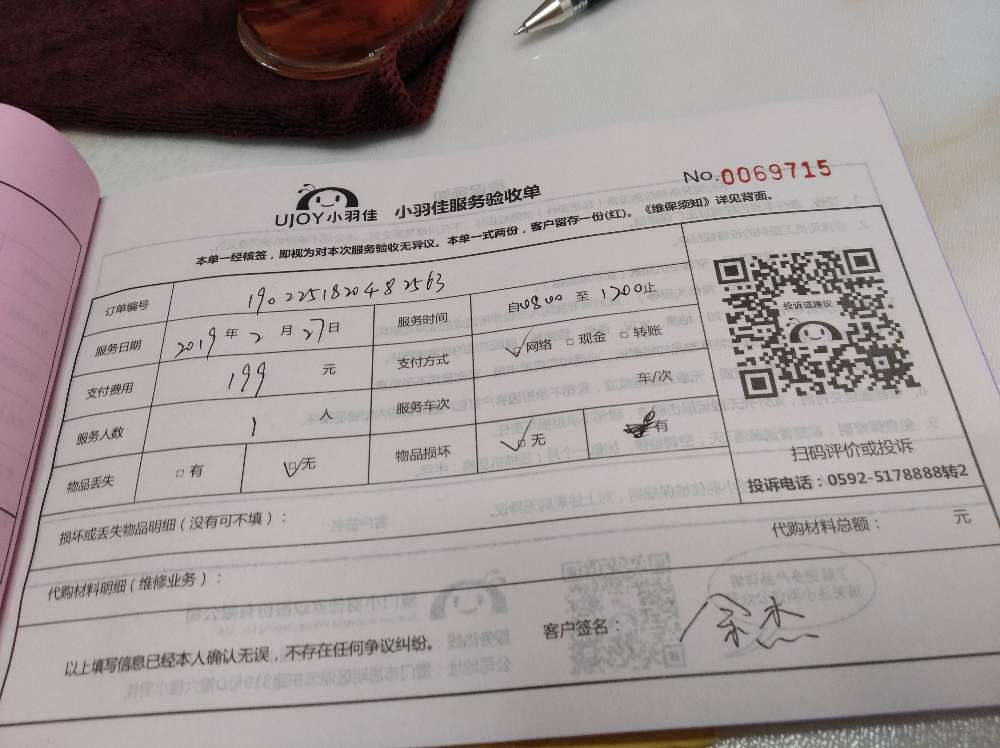 No.0069715
UJOY小羽佳 小羽佳服务验收单
本单一经核签，即视为对本次服务验收无异议。本单一式两份，客户留存一份(红)。《维保须知》详见背面。
订单编号 190225182048 2563
服务日期 2019年2月27日 服务时间 自0800至1200止
支付费用 199元 支付方式 网络 现金 转账
服务人数 1人 服务车次 车/次
物品丢失 有 无 物品损坏 无 有
投诉或建议
扫码评价或投诉
投诉电话：0592-5178888转2
损坏或丢失物品明细（没有可不填）：
代购材料明细（维修业务）： 代购材料总额： 元
以上填写信息已经本人确认无误，不存在任何争议纠纷。 客户签名： 余杰